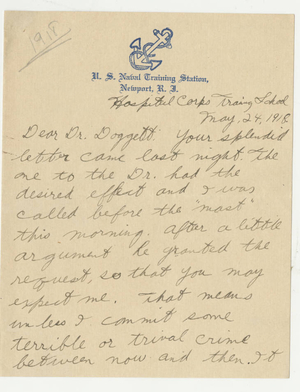 1918
U. S. Naval Training Station,
Newport, R. I.
Hospital Corps Traing School
May, 24, 1918
Dear Dr. Doggett: Your splendid
letter came last night. The
one to the Dr. had the
desired effect and I was
called before the "mast"
this morning. After a little
argument he granted the
request, so that you may
expect me. That means
unless I commit some
terrible or trival crime
between now and then. It